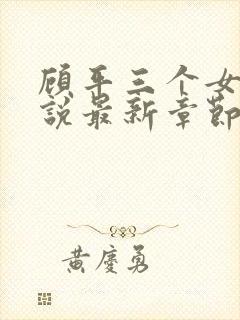 顾平三个女
说最新章節
黄慶勇